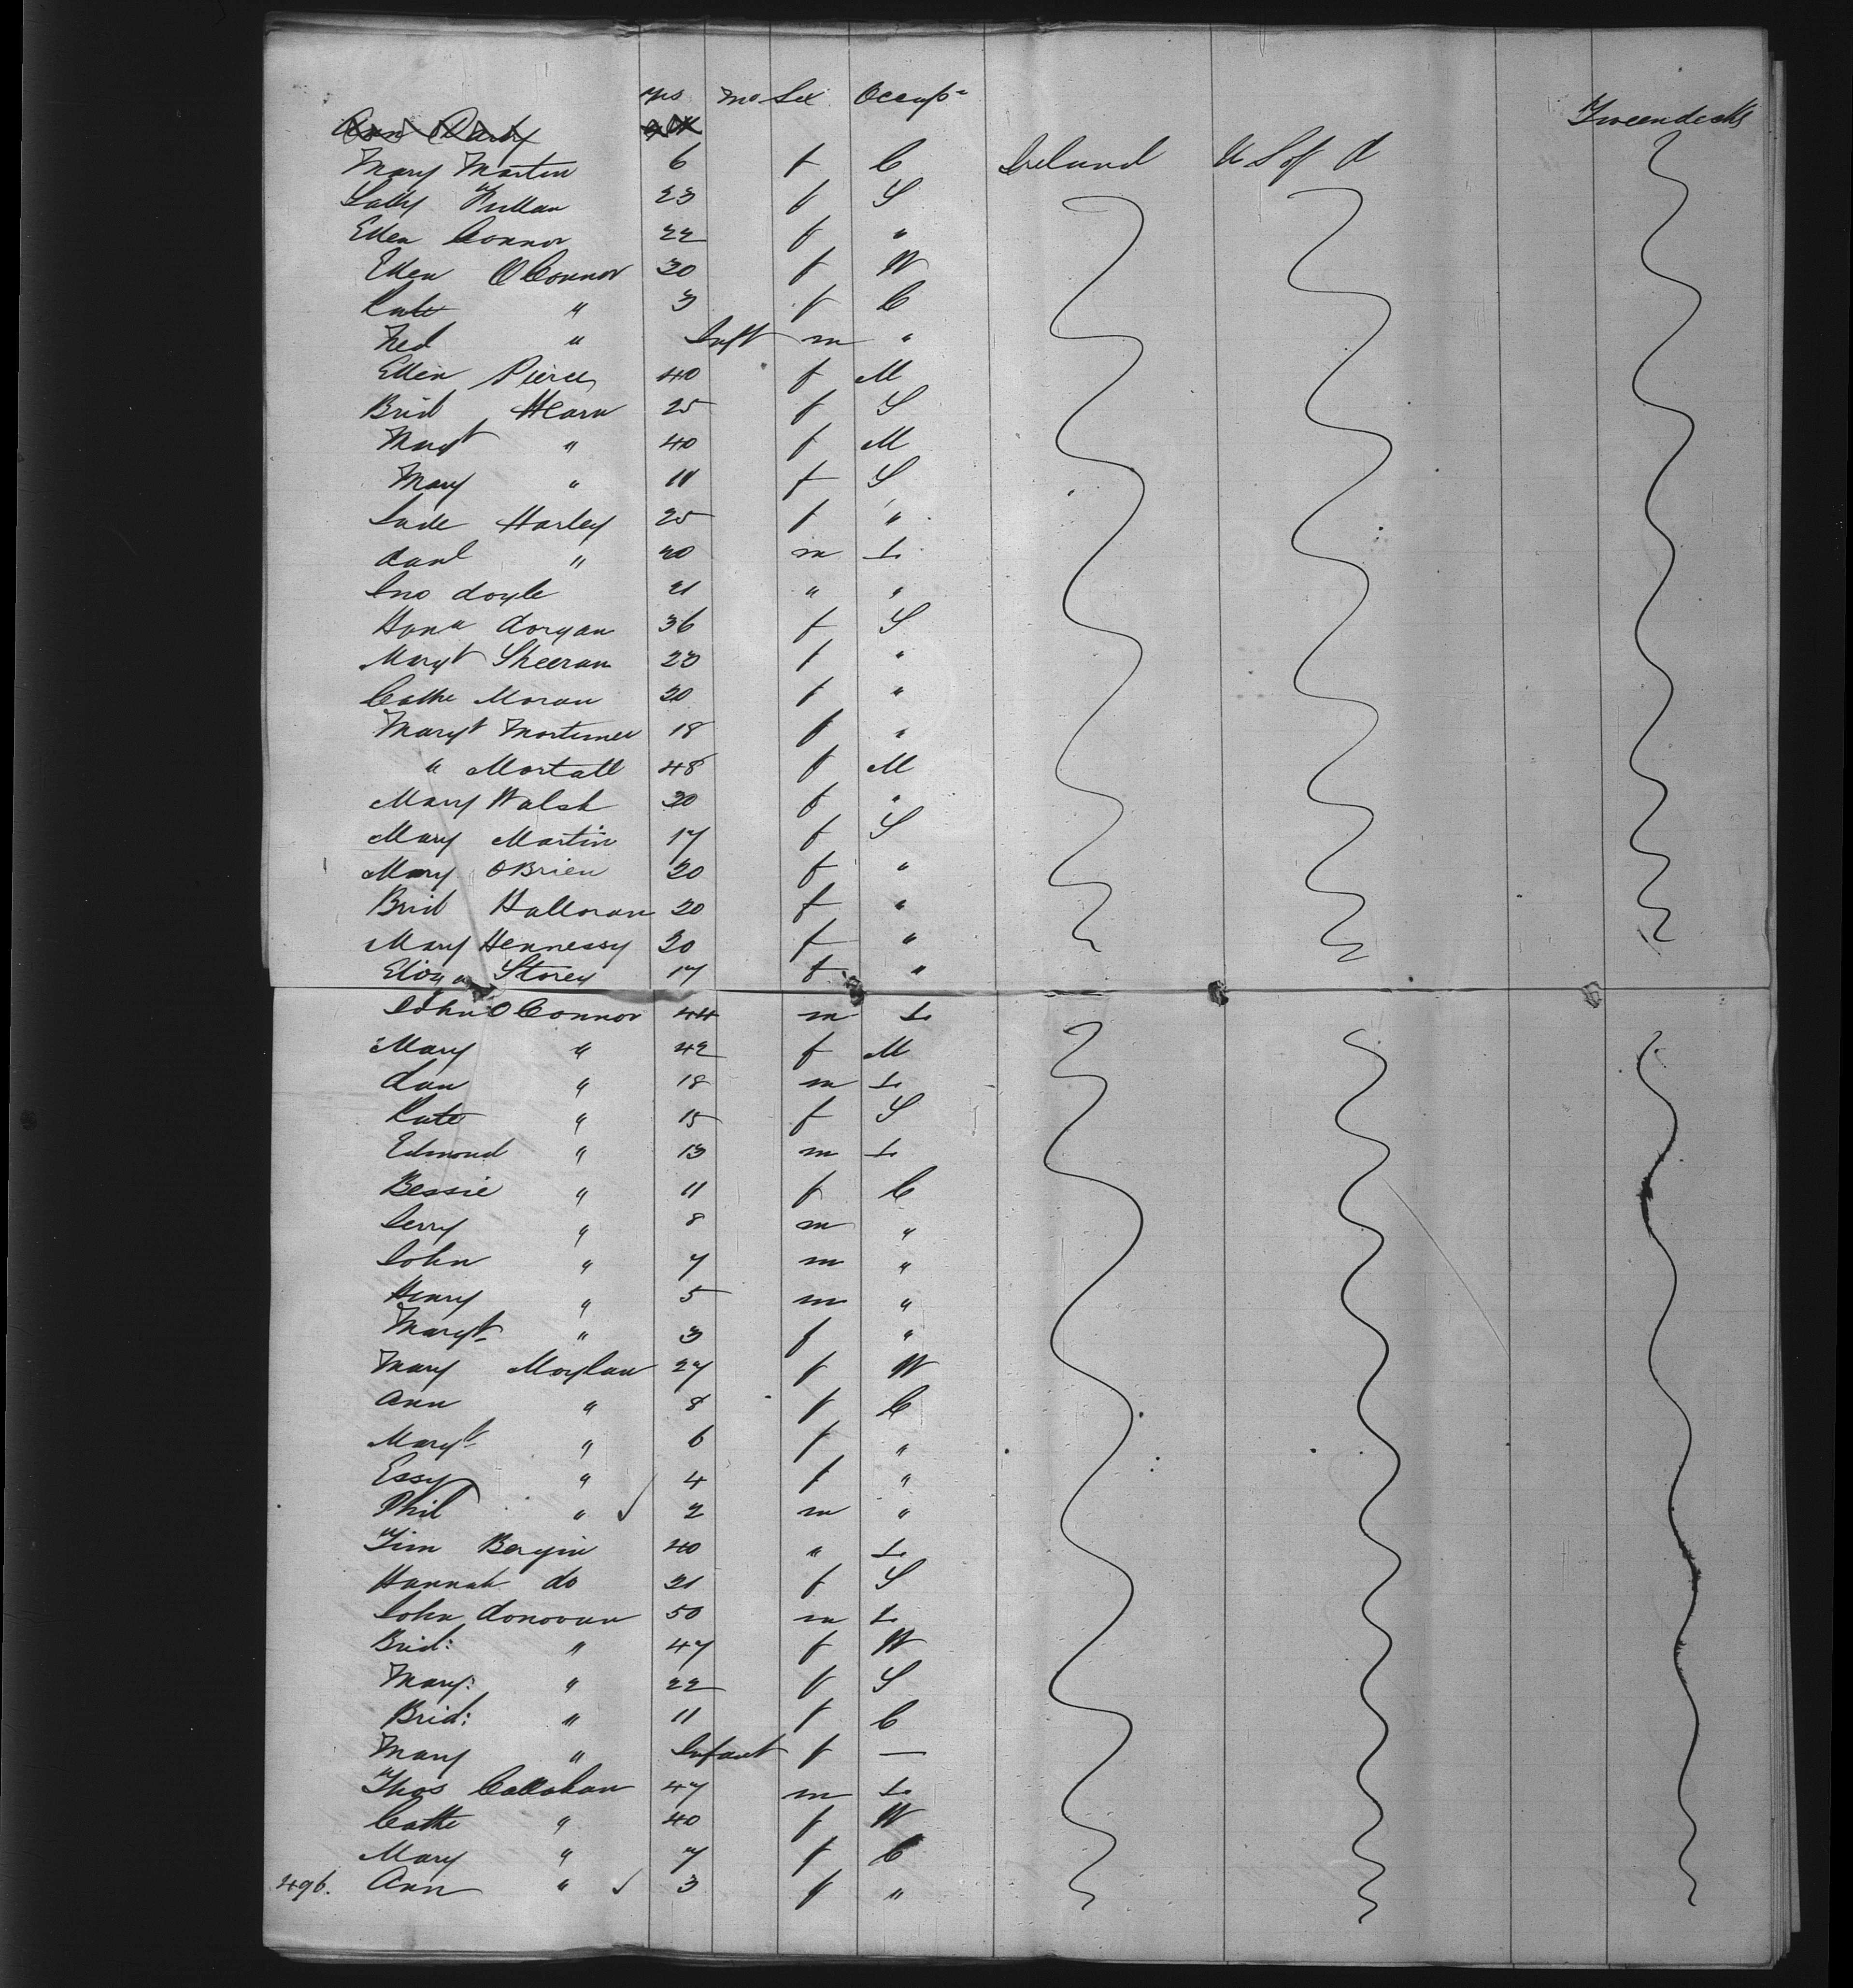 yrs mo Sex Occup
Tweendecks
Mary Martin 6 f C Ireland U S of A
Sally 23 f S
Ellen Connor 22 f "
Ellen OConnor 30 f W
Kate " 3 f C
Ned " Inft m "
Ellen Pierce 40 f M
Brid Hearn 25 f S
Margt " 40 f M
Mary " 11 f S
Jude Harley 25 f "
Danl " 20 m L
Jno Doyle 21 " "
Hona Dorgan 36 f S
Margt Sheeran 23 f "
Cathe Moran 20 f "
Margt Mortimer 18 f "
" Mortall 48 f M
Mary Walsh 30 f "
Mary Martin 17 f S
Mary OBrien 20 f "
Brid Halloran 20 f "
Mary Hennessy 20 f "
Eliza Storey 17 f "
John OConnor 44 m L
Mary " 42 f M
Dan " 18 m L
Kate " 15 f S
Edmond " 13 m L
Bessie " 11 f C
Jerry " 8 m "
John " 7 m "
Henry " 5 m "
Margt " 3 f "
Mary Moylan 27 f W
Ann " 8 f C
Margt " 6 f "
Essy " 4 f "
Phil " ✓ 2 m "
Tim Bergin 40 " L
Hannah do 21 f S
John Donovan 50 m L
Brid: " 47 f W
Mary: " 22 f S
Brid: " 11 f C
Mary " Infant f —
Thos Callahan 47 m L
Cathe " 40 f W
Mary " 7 f C
496. Ann " ✓ 3 f "